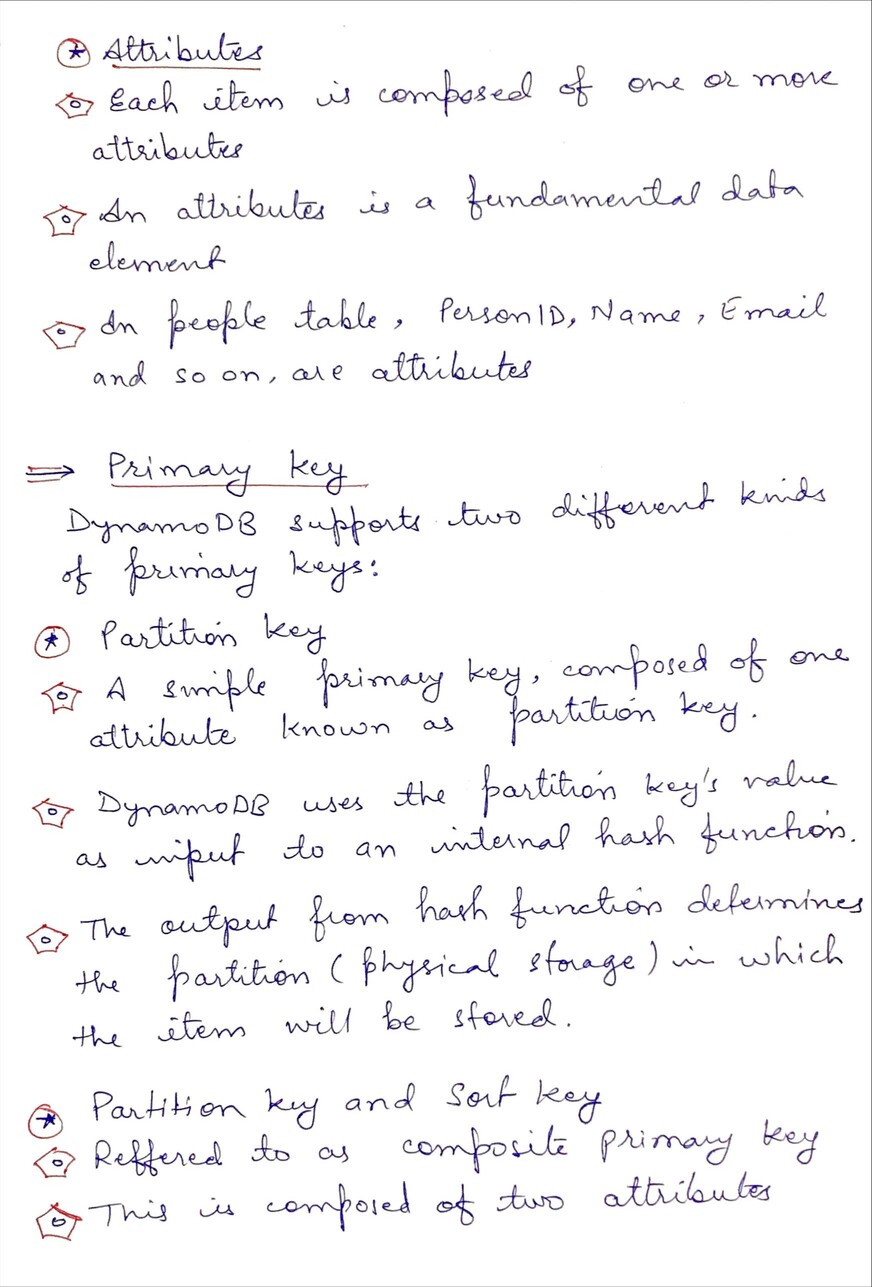 Attributes
Each item is composed of one or more
attributes
An attributes is a fundamental data
element
In people table, PersonID, Name, Email
and so on, are attributes
⇒ Primary key
DynamoDB supports two different kinds
of primary keys:
Partition key
A simple primary key, composed of one
attribute known as partition key.
DynamoDB uses the partition key's value
as input to an internal hash function.
The output from hash function determines
the partition (physical storage) in which
the item will be stored.
Partition key and Sort key
Reffered to as composite primary key
This is composed of two attributes